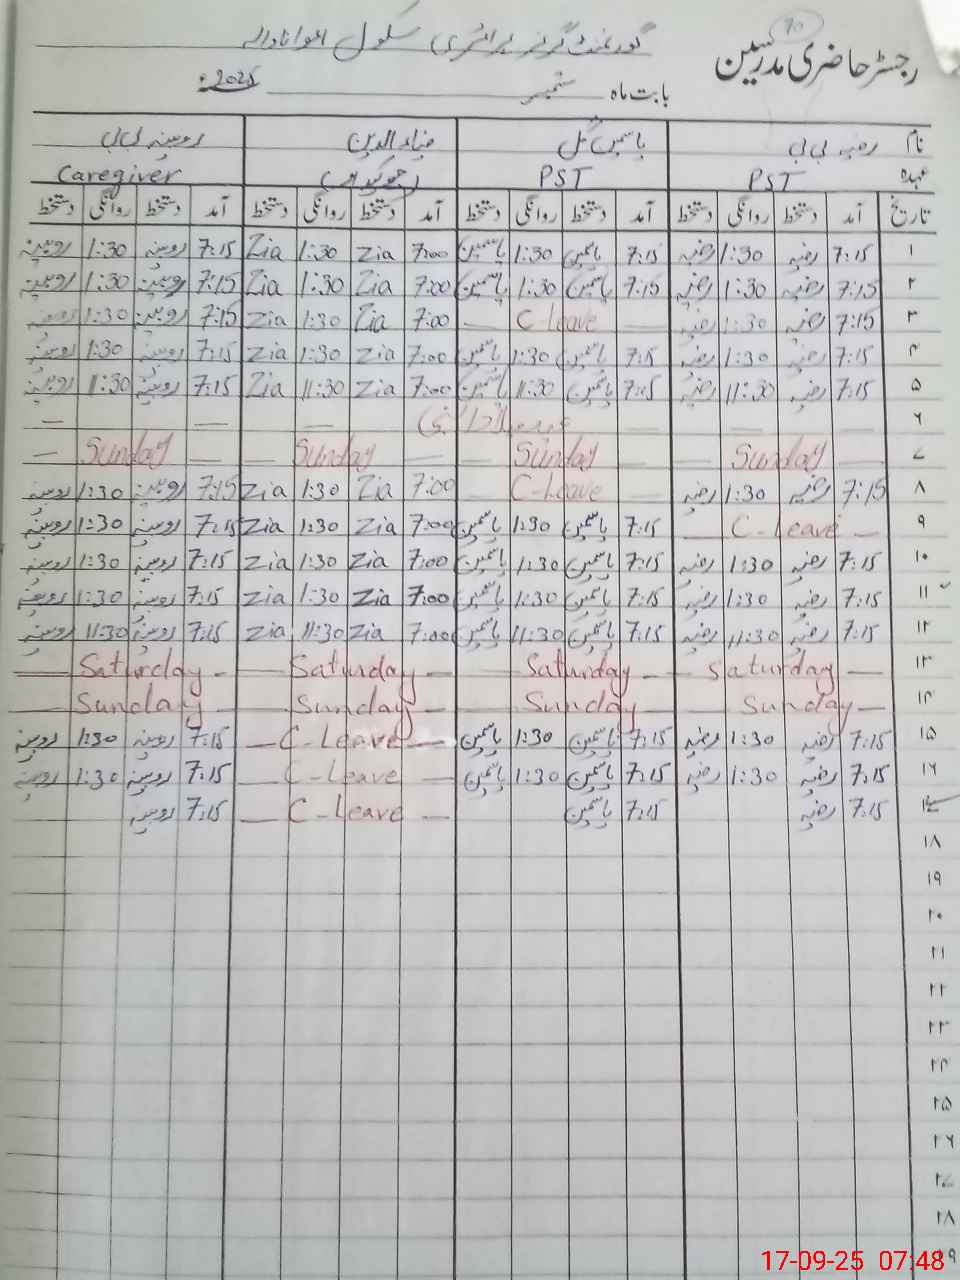 رجسٹر حاضری مدرسین
70
گورنمنٹ گرلز پرائمری سکول
بابت ماہ ستمبر 2025ء
نام رضیہ بی بی یاسمین گل ضیاء الدین روبینہ بی بی
عہدہ PST PST (چوکیدار) Caregiver
تاریخ آمد دستخط روانگی دستخط آمد دستخط روانگی دستخط آمد دستخط روانگی دستخط آمد دستخط روانگی دستخط
۱ 7:15 رضیہ 1:30 رضیہ 7:15 یاسمین 1:30 یاسمین 7:00 Zia 1:30 Zia 7:15 روبینہ 1:30 روبینہ
۲ 7:15 رضیہ 1:30 رضیہ 7:15 یاسمین 1:30 یاسمین 7:00 Zia 1:30 Zia 7:15 روبینہ 1:30 روبینہ
۳ 7:15 رضیہ 1:30 رضیہ — C-Leave — 7:00 Zia 1:30 Zia 7:15 روبینہ 1:30 روبینہ
۴ 7:15 رضیہ 1:30 رضیہ 7:15 یاسمین 1:30 یاسمین 7:00 Zia 1:30 Zia 7:15 روبینہ 1:30 روبینہ
۵ 7:15 رضیہ 11:30 رضیہ 7:15 یاسمین 11:30 یاسمین 7:00 Zia 11:30 Zia 7:15 روبینہ 11:30 روبینہ
۶
۷ Sunday — Sunday — Sunday — Sunday —
۸ 7:15 رضیہ 1:30 رضیہ — C-Leave — 7:00 Zia 1:30 Zia 7:15 روبینہ 1:30 روبینہ
۹ — C-Leave — 7:15 یاسمین 1:30 یاسمین 7:00 Zia 1:30 Zia 7:15 روبینہ 1:30 روبینہ
۱۰ 7:15 رضیہ 1:30 رضیہ 7:15 یاسمین 1:30 یاسمین 7:00 Zia 1:30 Zia 7:15 روبینہ 1:30 روبینہ
۱۱ 7:15 رضیہ 1:30 رضیہ 7:15 یاسمین 1:30 یاسمین 7:00 Zia 1:30 Zia 7:15 روبینہ 1:30 روبینہ
۱۲ 7:15 رضیہ 11:30 رضیہ 7:15 یاسمین 11:30 یاسمین 7:00 Zia 11:30 Zia 7:15 روبینہ 11:30 روبینہ
۱۳ Saturday — Saturday — Saturday — Saturday —
۱۴ Sunday — Sunday — Sunday — Sunday —
۱۵ 7:15 رضیہ 1:30 رضیہ 7:15 یاسمین 1:30 یاسمین — C-Leave — 7:15 روبینہ 1:30 روبینہ
۱۶ 7:15 رضیہ 1:30 رضیہ 7:15 یاسمین 1:30 یاسمین — C-Leave — 7:15 روبینہ 1:30 روبینہ
۱۷ 7:15 رضیہ 7:15 یاسمین — C-Leave — 7:15 روبینہ
۱۸
۱۹
۲۰
۲۱
۲۲
۲۳
۲۴
۲۵
۲۶
۲۷
۲۸
۲۹
17-09-25 07:48